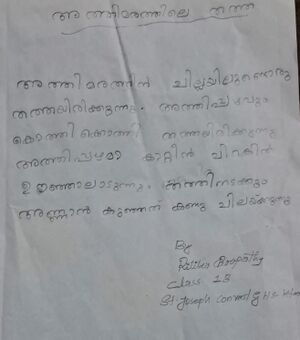 അത്തിമരത്തിലെ തത്ത
അത്തിമരത്തിൻ ചില്ലയിലുണ്ടൊരു
തത്തയിരിക്കുന്നു. അത്തിപ്പഴവും
കൊത്തി കൊത്തി തത്തയിരിക്കുന്നു
അത്തിപ്പഴമാ കാറ്റിൻ ചിറകിൽ
ഉഞ്ഞാലാടുന്നു. കുത്തിനടക്കും
അണ്ണാൻ കുഞ്ഞത് കണ്ടു ചിലയ്ക്കുന്നു
By
Class 1B
St Joseph